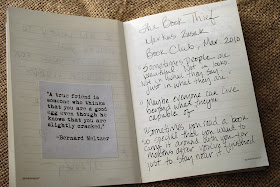 "A true friend is
someone who thinks
that you are a good
egg even though he
knows that you are
slightly cracked."
-Bernard Meltzer
The Book Thief
Markus Zusak
Book Club, Mar. 2010
Sometimes people are
beautiful. Not in looks.
Not in what they say.
Just in what they are.
Maybe everyone can live
beyond what they're
capable of.
Sometimes you read a book
so special that you want to
carry it around with you for
months after you've finished
just to stay near it.